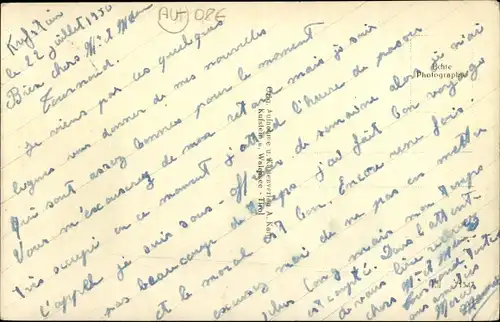 AUT 02E
Kufstein
le 22 juillet 1950
Bien chers Mr et Mdm
Tournoud.
Je viens par ces quelques
lignes vous donner de mes nouvelles
qui sont assez bonnes pour le moment
Vous m'excuserez de mon retard mais je suis
très occupé en ce moment j'attend l'heure de passer
l'appel je suis sous-officier de semaine alors je n'ai
pas beaucoup de temps j'ai fait bon voyage
et le moral est bon. Encore une fois
excusez moi de ne pas en mettre
plus long mais mon temps
est compté. Dans l'attente
de vous lire recevez
chers Mr et Mdm
Tournoud
mes amitiés
Echte
Photographie
Orig. Aufnahme u. Kunstverlag A. Karg
Kufstein u. Walchsee - Tirol